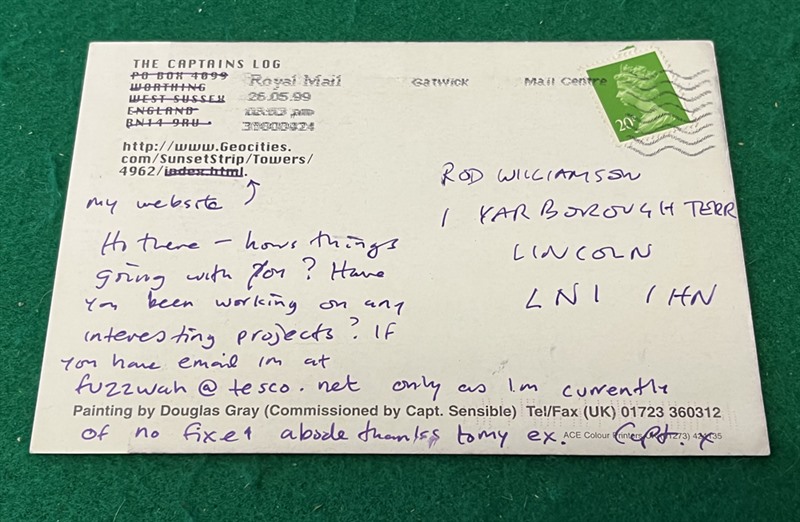 THE CAPTAINS LOG
PO BOX 4899
WORTHING
WEST SUSSEX
ENGLAND
BN14 9RU
Royal Mail Gatwick Mail Centre
26.05.99
20
http://www.Geocities.
com/SunsetStrip/Towers/
4962/index.html.
my website
Hi there – hows things
going with you? Have
you been working on any
interesting projects? If
you have email im at
fuzzwah@tesco.net only as I'm currently
Painting by Douglas Gray (Commissioned by Capt. Sensible) Tel/Fax (UK) 01723 360312
of no fixed abode thanks to my ex. Capt. x
ACE Colour Printers
ROD WILLIAMSON
1 YARBOROUGH TERR
LINCOLN
LN1 1HN